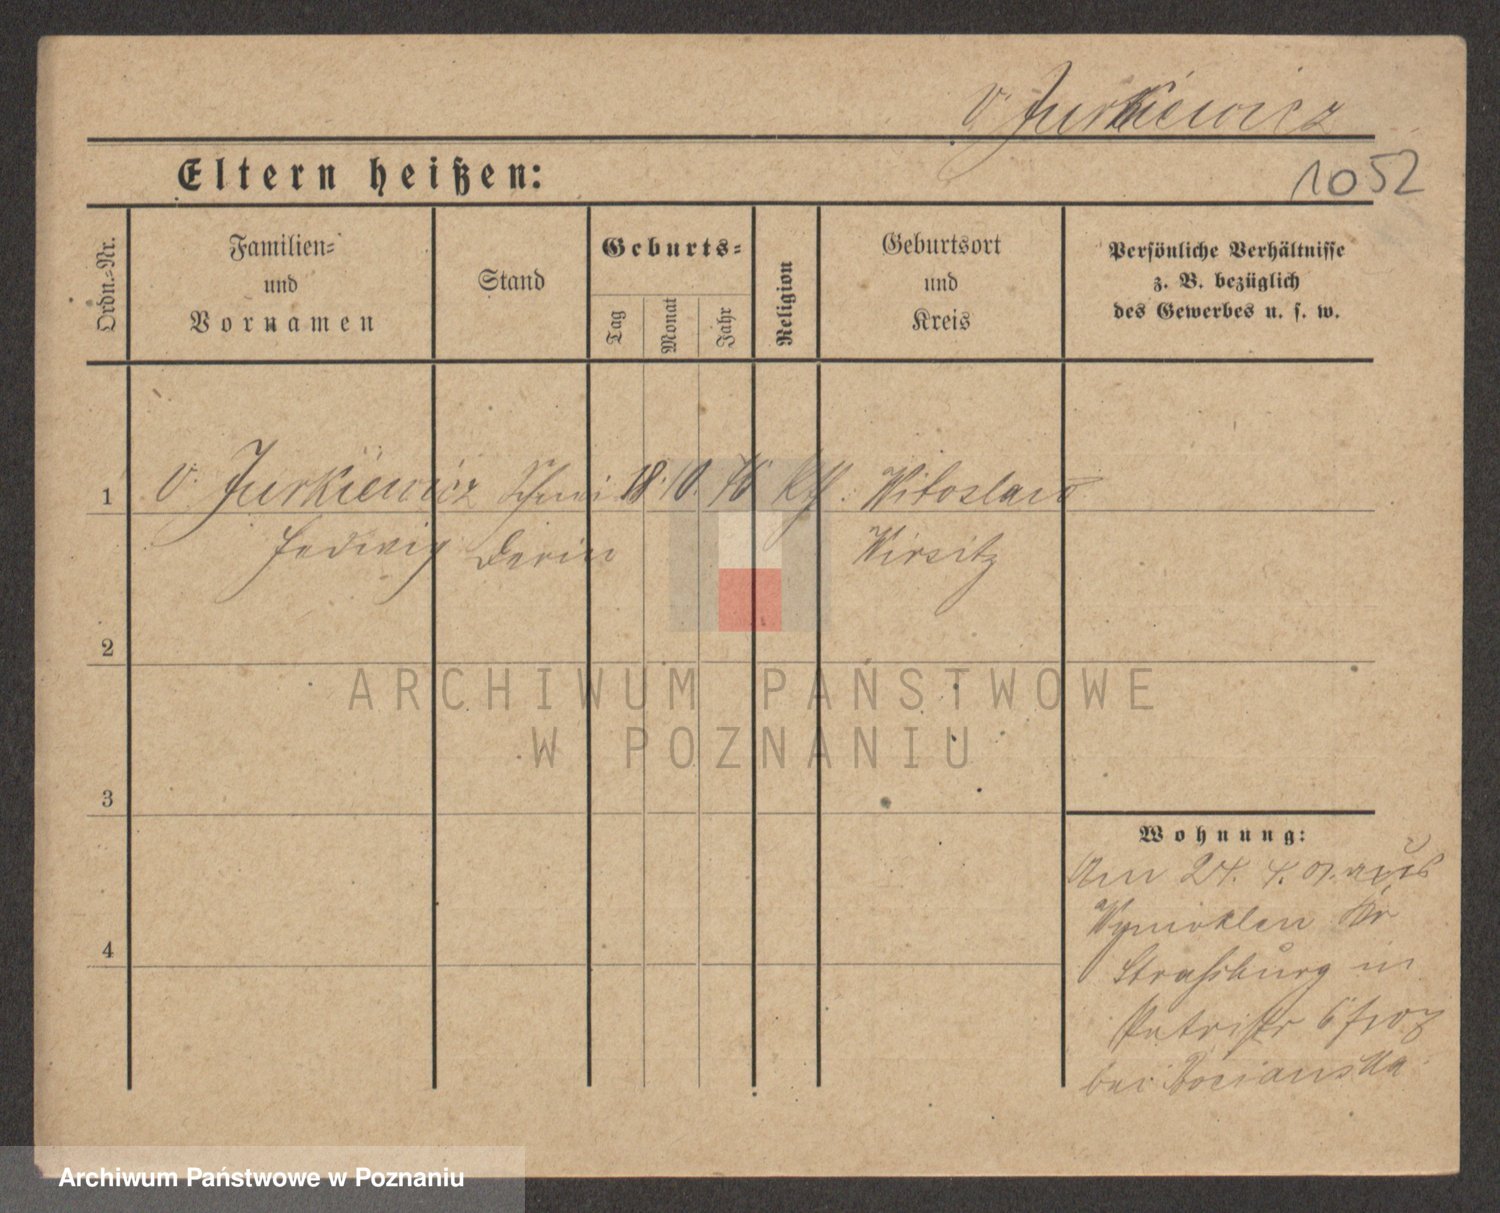 v. Jurkiewicz
Eltern heißen:
1052
Ordn.-Nr.
Familien-
und
Vornamen
Stand
Geburts-
Tag
Monat
Jahr
Religion
Geburtsort
und
Kreis
Persönliche Verhältnisse
z. B. bezüglich
des Gewerbes u. s. w.
1 v. Jurkiewicz Schnei 18. 10. 76 Kth. Witoslaw
Hedwig derin Wirsitz
2
3
4
Wohnung:
Am 24. 4. 07. aus
Kr
Strasburg in
Patristr 6
bei Bocianska
ARCHIWUM PAŃSTWOWE
W POZNANIU
Archiwum Państwowe w Poznaniu